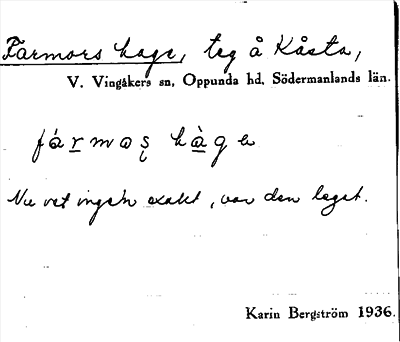 Farmors hage, teg å Kåsta,
V. Vingåkers sn, Oppunda hd, Södermanlands län.
fármoş hàgə
Nu vet ingen exakt, var den legat.
Karin Bergström 1936.